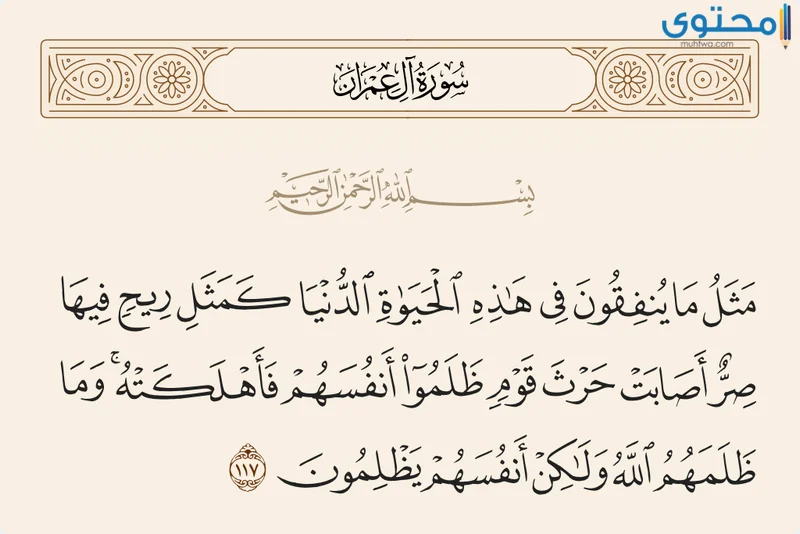 محتوى
muhtwa.com
سُورَةُ آلِ عِمْرَانَ
بِسْمِ ٱللَّهِ ٱلرَّحْمَٰنِ ٱلرَّحِيمِ
مَثَلُ مَا يُنفِقُونَ فِى هَٰذِهِ ٱلْحَيَوٰةِ ٱلدُّنْيَا كَمَثَلِ رِيحٍ فِيهَا
صِرٌّ أَصَابَتْ حَرْثَ قَوْمٍ ظَلَمُوٓا۟ أَنفُسَهُمْ فَأَهْلَكَتْهُ ۚ وَمَا
ظَلَمَهُمُ ٱللَّهُ وَلَٰكِنْ أَنفُسَهُمْ يَظْلِمُونَ ١١٧